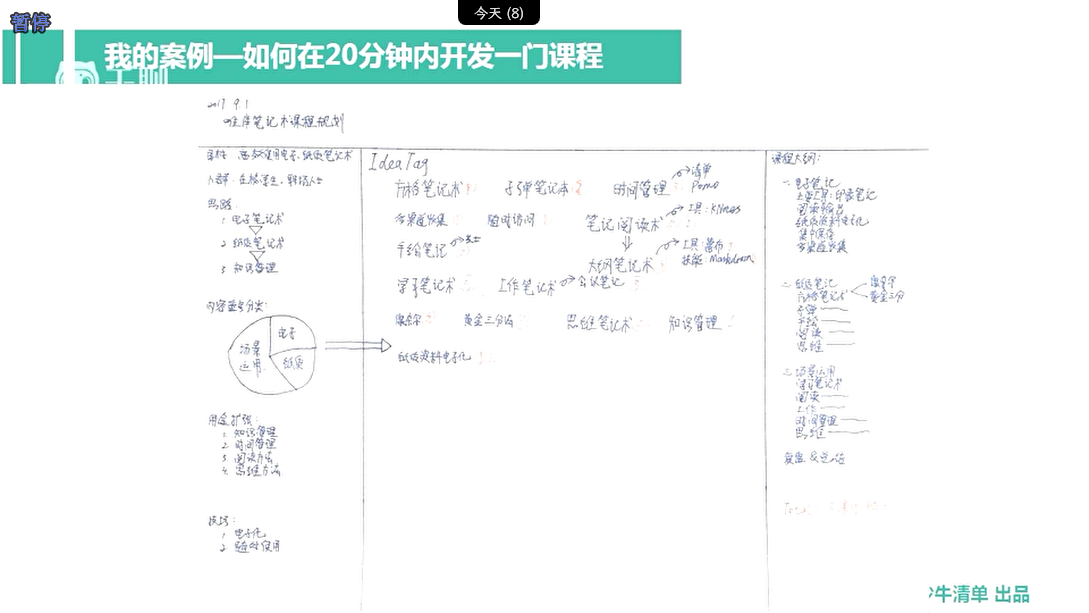 今天 (8)
暂停
我的案例—如何在20分钟内开发一门课程
千聊
2017.9.1
笔记术课程规划
目标: 高效使用电子、纸质笔记术
人群: 在校学生、职场人士
思路:
1. 电子笔记术
2. 纸质笔记术
3. 知识管理
内容番号分类:
电子
场景运用
纸质
用途扩张:
1. 知识管理
2. 时间管理
3. 阅读方法
4. 思维方法
技巧:
1. 电子化
2. 随时使用
IdeaTag
方格笔记术 子弹笔记本 时间管理 清单
Pomo
多渠道收集 随时访问 笔记阅读术 工具:
手绘笔记
大纲笔记术 工具: 幕布
技能: Markdown
学习笔记术 工作笔记术 会议笔记
康奈尔 黄金三分法 思维笔记术 知识管理
纸质资料电子化
课程大纲:
一. 电子笔记
主要工具: 印象笔记
阅读
纸质资料电子化
多渠道收集
二. 纸质笔记 康奈尔
方格笔记术 黄金三分
子弹
手绘
阅读
思维
三. 场景运用
学习笔记术
阅读
工作
时间管理
思维
复盘 & 总结
牛清单 出品